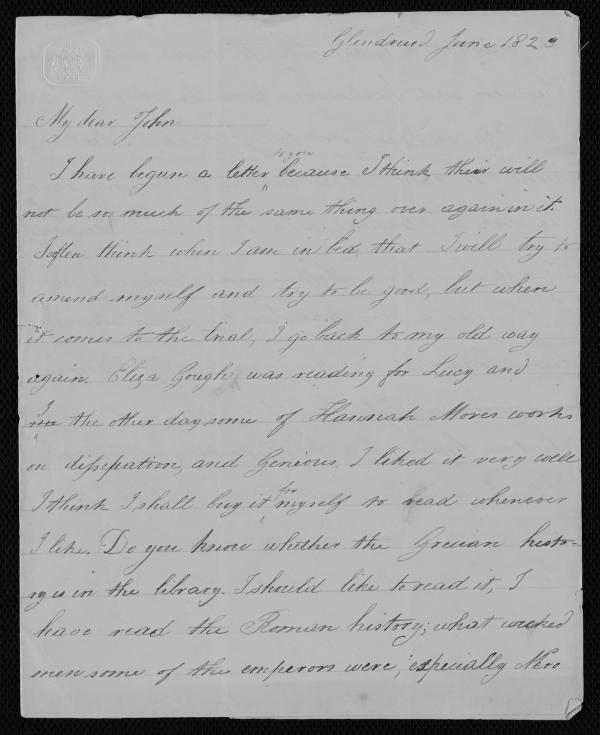 Glendruid June 1823
My dear John
to you
I have begun a letter because I think their will
not be so much of the same thing over again in it.
I often think when I am in bed, that I will try to
amend myself and try to be good, but when
it comes to the trial, I go back to my old way
again. Eliza Gough was reading for Lucy and
I
me the other day some of Hannah Mores works
on dissipation, and Genious, I liked it very well
for
I think I shall buy it myself to read whenever
I like. Do you know whether the Grecian histo-
ry is in the library. I should like to read it, I
have read the Roman history; what wicked
men some of the emperors were, especially Nero